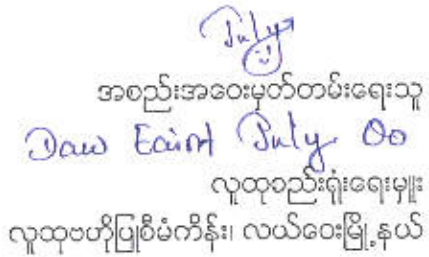 July
အစည်းအဝေးမှတ်တမ်းရေးသူ
Daw Eaint July Oo
လူထုစည်းရုံးရေးမှူး
လူထုဗဟိုပြုစီမံကိန်း၊ လယ်ဝေးမြို့နယ်